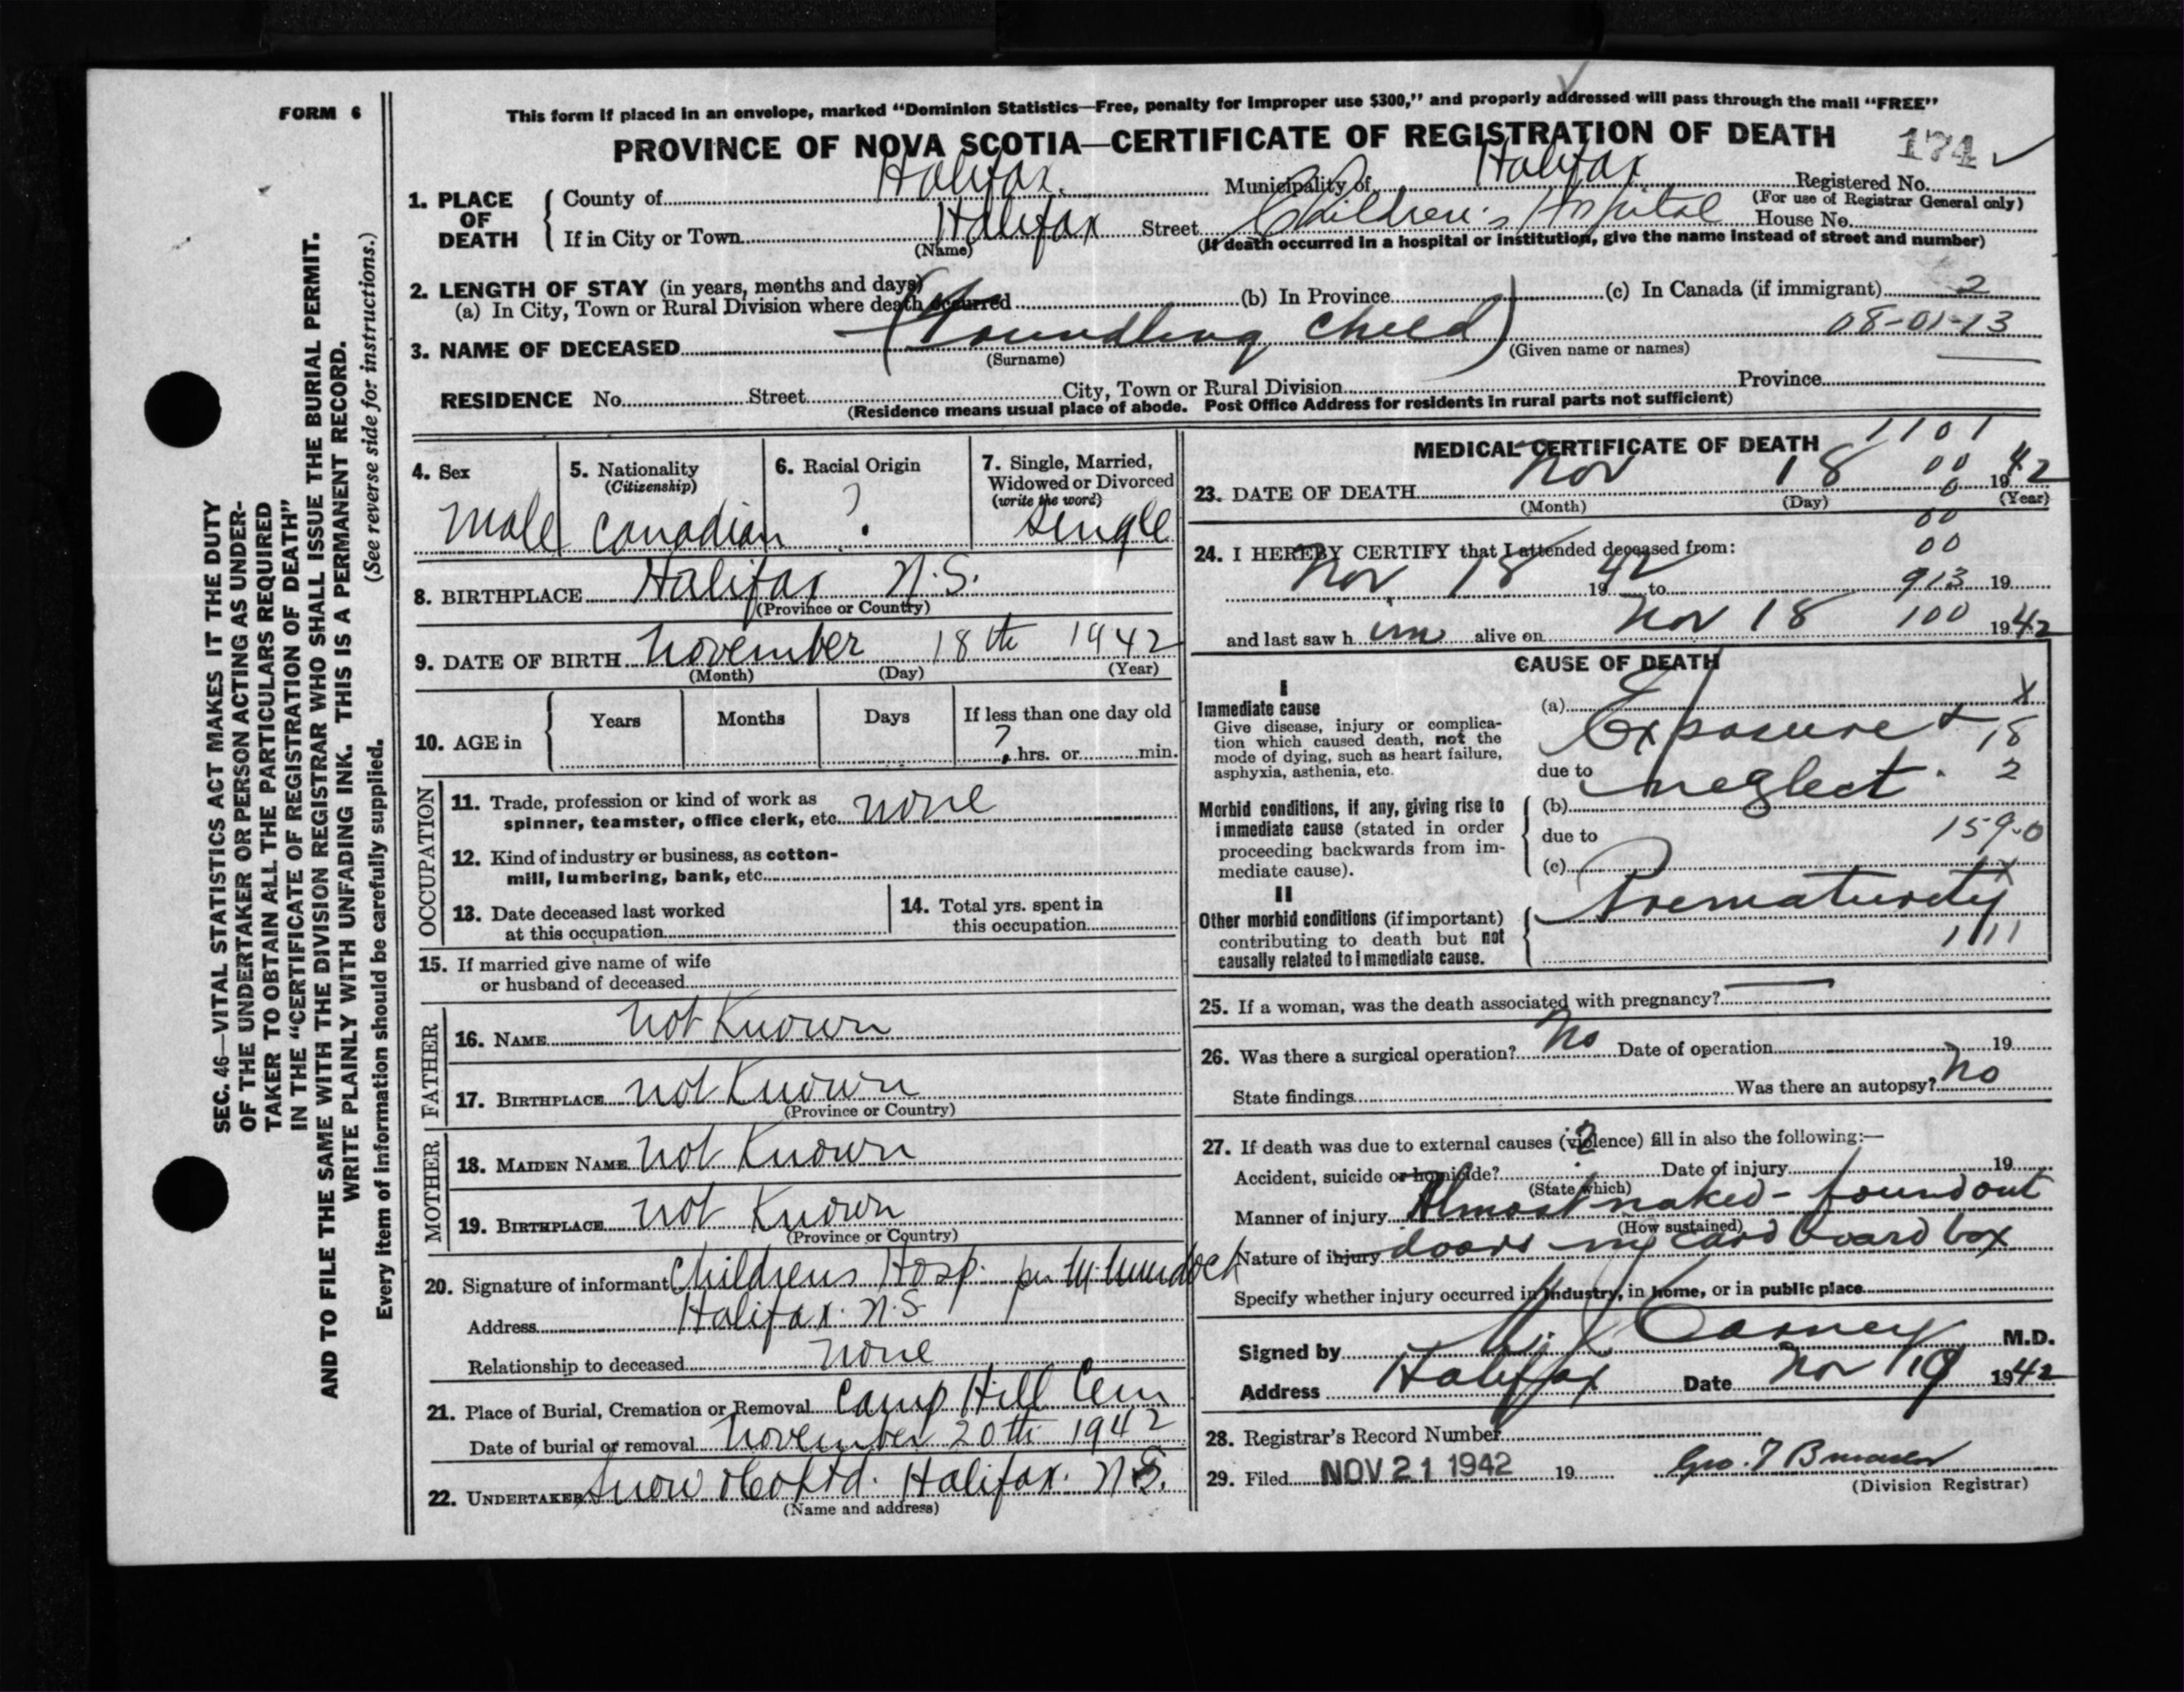 FORM 6
This form if placed in an envelope, marked “Dominion Statistics—Free, penalty for improper use $300,” and properly addressed will pass through the mail “FREE”
PROVINCE OF NOVA SCOTIA—CERTIFICATE OF REGISTRATION OF DEATH
174
1. PLACE OF DEATH
County of Halifax. Municipality of Halifax Registered No.
(For use of Registrar General only)
If in City or Town Halifax Street Children's Hospital House No.
(Name) (If death occurred in a hospital or institution, give the name instead of street and number)
2. LENGTH OF STAY (in years, months and days)
(a) In City, Town or Rural Division where death occurred (b) In Province (c) In Canada (if immigrant) 2
3. NAME OF DECEASED (Foundling Child) 08-01-13
(Surname) (Given name or names)
RESIDENCE No. Street City, Town or Rural Division Province
(Residence means usual place of abode. Post Office Address for residents in rural parts not sufficient)
4. Sex
Male
5. Nationality
(Citizenship)
Canadian
6. Racial Origin
?
7. Single, Married,
Widowed or Divorced
(write the word)
Single
8. BIRTHPLACE Halifax N.S.
(Province or Country)
9. DATE OF BIRTH November 18th 1942
(Month) (Day) (Year)
10. AGE in
Years Months Days If less than one day old
? hrs. or min.
OCCUPATION
11. Trade, profession or kind of work as
spinner, teamster, office clerk, etc. none
12. Kind of industry or business, as cotton-
mill, lumbering, bank, etc.
13. Date deceased last worked
at this occupation
14. Total yrs. spent in
this occupation
15. If married give name of wife
or husband of deceased
FATHER
16. NAME not Known
17. BIRTHPLACE not Known
(Province or Country)
MOTHER
18. MAIDEN NAME not Known
19. BIRTHPLACE not Known
(Province or Country)
20. Signature of informant Childrens Hosp. per M. Murdoch
Address Halifax. N.S
Relationship to deceased none
21. Place of Burial, Cremation or Removal Camp Hill Cem
Date of burial or removal November 20th 1942
22. UNDERTAKER Snow & Co Ltd. Halifax. N.S.
(Name and address)
MEDICAL CERTIFICATE OF DEATH
1101
23. DATE OF DEATH Nov 18 00 1942
(Month) (Day) 0 (Year)
00
24. I HEREBY CERTIFY that I attended deceased from: 00
Nov 18 1942 to 913 19
and last saw h im alive on Nov 18 100 1942
CAUSE OF DEATH
I
Immediate cause
Give disease, injury or complica-
tion which caused death, not the
mode of dying, such as heart failure,
asphyxia, asthenia, etc.
(a) Exposure & X
18
due to neglect. 2
Morbid conditions, if any, giving rise to
immediate cause (stated in order
proceeding backwards from im-
mediate cause).
(b)
due to 159-0
(c) X
II
Other morbid conditions (if important)
contributing to death but not
causally related to immediate cause.
Prematurity
1111
25. If a woman, was the death associated with pregnancy? —
26. Was there a surgical operation? No Date of operation 19
State findings Was there an autopsy? No
27. If death was due to external causes (violence) fill in also the following:—
Accident, suicide or homicide? ? Date of injury 19
(State which)
Manner of injury Almost naked - found out
(How sustained)
Nature of injury doors in card board box
Specify whether injury occurred in industry, in home, or in public place
Signed by Carney M.D.
Address Halifax Date Nov 19 1942
28. Registrar's Record Number
29. Filed NOV 21 1942 19 Geo. T
(Division Registrar)
SEC. 46—VITAL STATISTICS ACT MAKES IT THE DUTY
OF THE UNDERTAKER OR PERSON ACTING AS UNDER-
TAKER TO OBTAIN ALL THE PARTICULARS REQUIRED
IN THE “CERTIFICATE OF REGISTRATION OF DEATH”
AND TO FILE THE SAME WITH THE DIVISION REGISTRAR WHO SHALL ISSUE THE BURIAL PERMIT.
WRITE PLAINLY WITH UNFADING INK. THIS IS A PERMANENT RECORD.
(See reverse side for instructions.)
Every item of information should be carefully supplied.